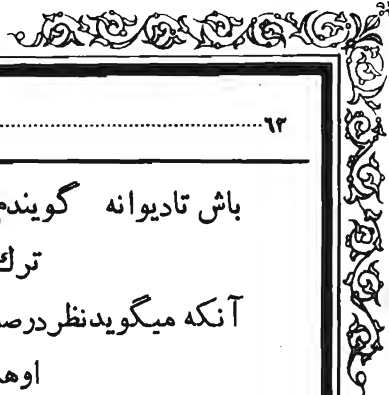 ۶۲
باش تادیوانه گویندم
ترك
آنكه میگویدنظردرصو
اوهم